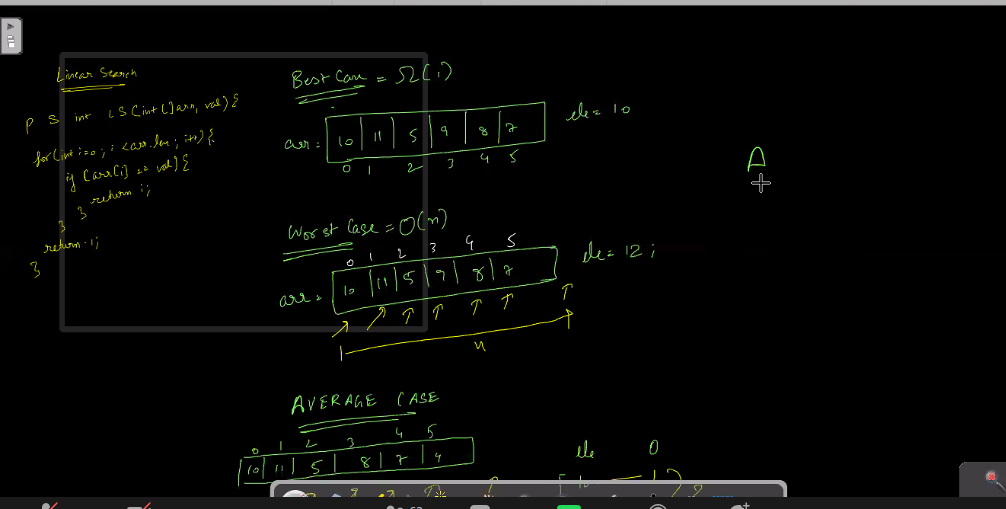 Linear Search
P S int LS(int[] arr, val){
for(int i=0; i<arr.len; i++){
if (arr[i] == val){
return i;
} }
return -1;
}
Best Case = Ω(1)
arr = 10 11 5 9 8 7 ele = 10
0 1 2 3 4 5
Worst Case = O(n)
0 1 2 3 4 5
arr = 10 11 5 9 8 7 ele = 12;
1 n
AVERAGE CASE
0 1 2 3 4 5
10 11 5 8 7 4
ele 0
10 1
A